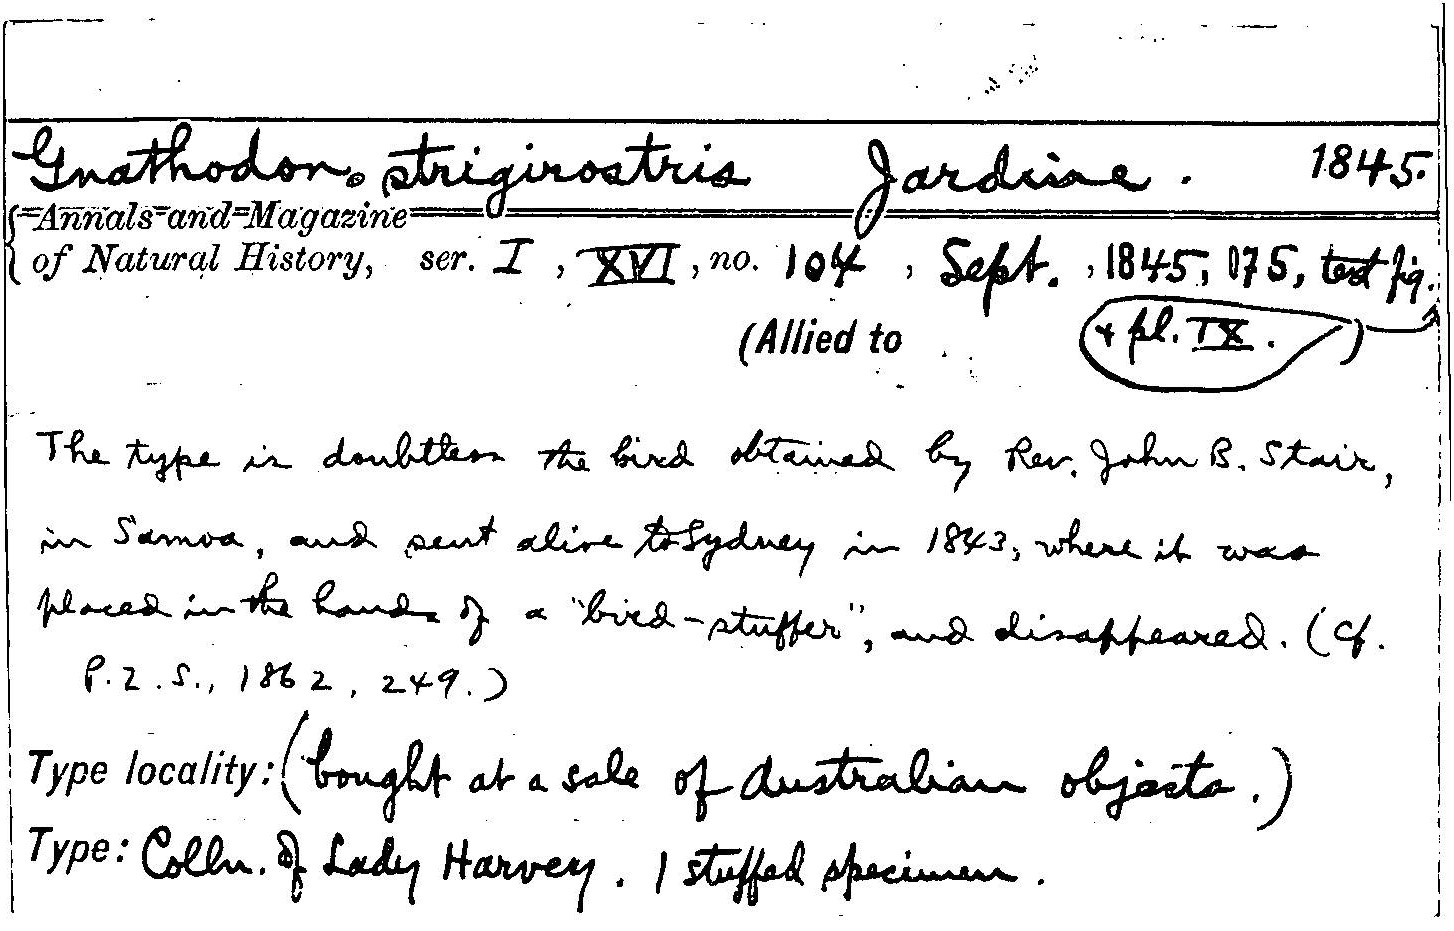 Gnathodon. strigirostris Jardine. 1845.
Annals and Magazine
of Natural History, ser. I, XVI, no. 104, Sept., 1845, 175, text fig.
(Allied to + pl. IX. )
The type is doubtless the bird obtained by Rev. John B. Stair,
in Samoa, and sent alive to Sydney in 1843, where it was
placed in the hands of a "bird-stuffer", and disappeared. (Cf.
P.Z.S., 1862, 249.)
Type locality: (bought at a sale of Australian objects.)
Type: Colln. of Lady Harvey. 1 stuffed specimen.